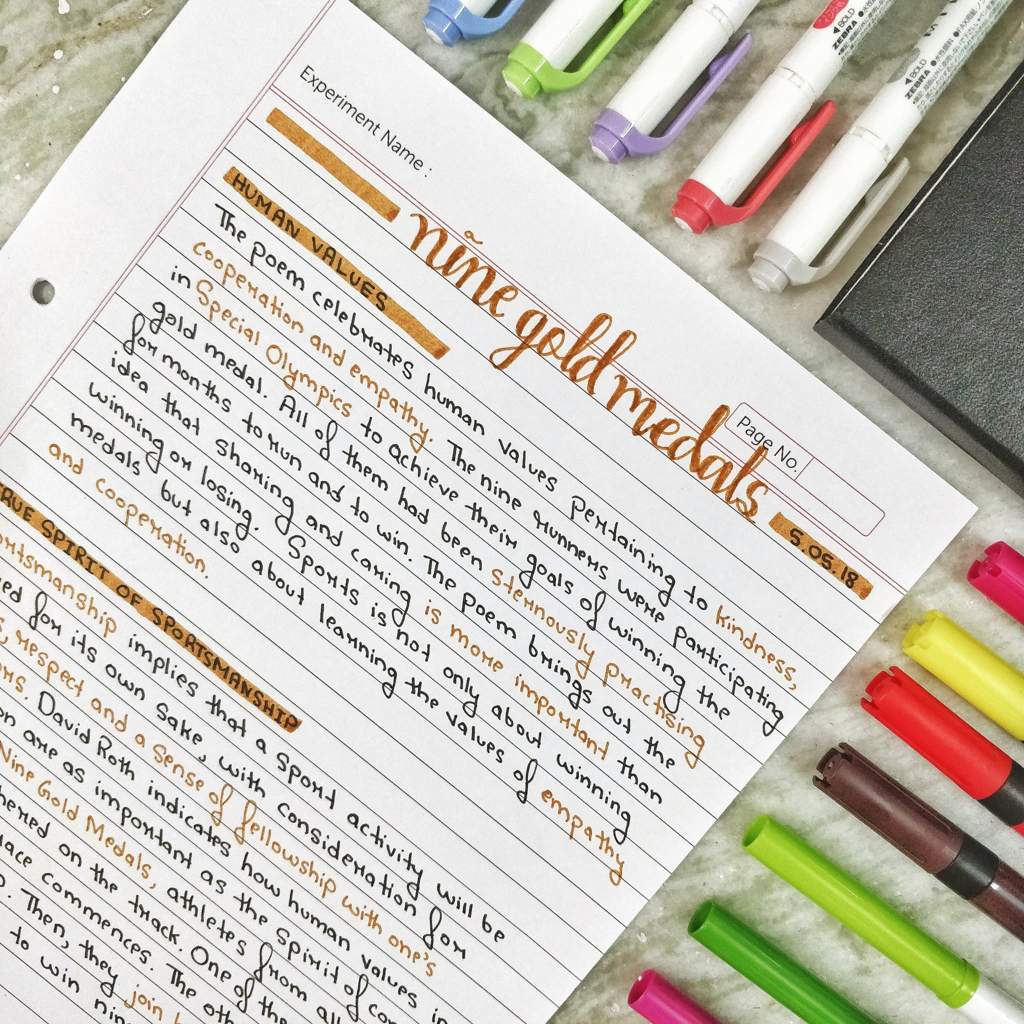 Experiment Name :
nine gold medals
Page No.
5.05.18
HUMAN VALUES
The poem celebrates human values pertaining to kindness,
cooperation and empathy. The nine runners were participating
in Special Olympics to achieve their goals of winning the
gold medal. All of them had been sternously practising
for months to run and to win. The poem brings out the
idea that sharing and caring is more important than
winning or losing. Sports is not only about winning
medals but also about learning the values of empathy
and cooperation.
RUE SPIRIT OF SPORTSMANSHIP
ortsmanship implies that a sport activity will be
ed for its own sake, with consideration for
respect and a sense of fellowship with one's
ors. David Roth indicates how human values in
on are as important as the spirit of com
Nine Gold Medals, athletes from all
hered on the track. One of the
ace commences. The oth
Then, they join
to win nin
BOLD
ZEBRA
BOLD
ZEBRA